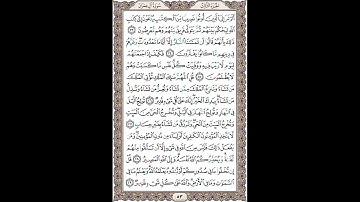 الجزء الثالث
سورة آل عمران
أَلَمْ تَرَ إِلَى ٱلَّذِينَ أُوتُوا۟ نَصِيبًا مِّنَ ٱلْكِتَٰبِ يُدْعَوْنَ إِلَىٰ كِتَٰبِ
ٱللَّهِ لِيَحْكُمَ بَيْنَهُمْ ثُمَّ يَتَوَلَّىٰ فَرِيقٌ مِّنْهُمْ وَهُم مُّعْرِضُونَ ٢٣
ذَٰلِكَ بِأَنَّهُمْ قَالُوا۟ لَن تَمَسَّنَا ٱلنَّارُ إِلَّآ أَيَّامًا مَّعْدُودَٰتٍ وَغَرَّهُمْ
فِى دِينِهِم مَّا كَانُوا۟ يَفْتَرُونَ ٢٤ فَكَيْفَ إِذَا جَمَعْنَٰهُمْ
لِيَوْمٍ لَّا رَيْبَ فِيهِ وَوُفِّيَتْ كُلُّ نَفْسٍ مَّا كَسَبَتْ وَهُمْ
لَا يُظْلَمُونَ ٢٥ قُلِ ٱللَّهُمَّ مَٰلِكَ ٱلْمُلْكِ تُؤْتِى ٱلْمُلْكَ مَن
تَشَآءُ وَتَنزِعُ ٱلْمُلْكَ مِمَّن تَشَآءُ وَتُعِزُّ مَن تَشَآءُ وَتُذِلُّ
مَن تَشَآءُ بِيَدِكَ ٱلْخَيْرُ إِنَّكَ عَلَىٰ كُلِّ شَىْءٍ قَدِيرٌ ٢٦ تُولِجُ ٱلَّيْلَ
فِى ٱلنَّهَارِ وَتُولِجُ ٱلنَّهَارَ فِى ٱلَّيْلِ وَتُخْرِجُ ٱلْحَىَّ مِنَ ٱلْمَيِّتِ
وَتُخْرِجُ ٱلْمَيِّتَ مِنَ ٱلْحَىِّ وَتَرْزُقُ مَن تَشَآءُ بِغَيْرِ حِسَابٍ ٢٧
لَّا يَتَّخِذِ ٱلْمُؤْمِنُونَ ٱلْكَٰفِرِينَ أَوْلِيَآءَ مِن دُونِ ٱلْمُؤْمِنِينَ وَمَن
يَفْعَلْ ذَٰلِكَ فَلَيْسَ مِنَ ٱللَّهِ فِى شَىْءٍ إِلَّآ أَن تَتَّقُوا۟ مِنْهُمْ
تُقَىٰةً وَيُحَذِّرُكُمُ ٱللَّهُ نَفْسَهُۥ وَإِلَى ٱللَّهِ ٱلْمَصِيرُ ٢٨ قُلْ إِن
تُخْفُوا۟ مَا فِى صُدُورِكُمْ أَوْ تُبْدُوهُ يَعْلَمْهُ ٱللَّهُ وَيَعْلَمُ مَا فِى
ٱلسَّمَٰوَٰتِ وَمَا فِى ٱلْأَرْضِ وَٱللَّهُ عَلَىٰ كُلِّ شَىْءٍ قَدِيرٌ ٢٩
٥٣